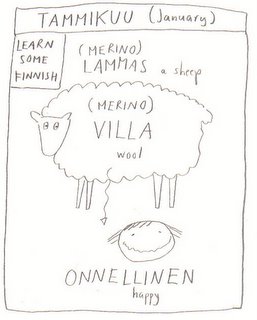 TAMMIKUU (January)
LEARN
SOME
FINNISH
(MERINO)
LAMMAS a sheep
(MERINO)
VILLA
wool
ONNELLINEN
happy